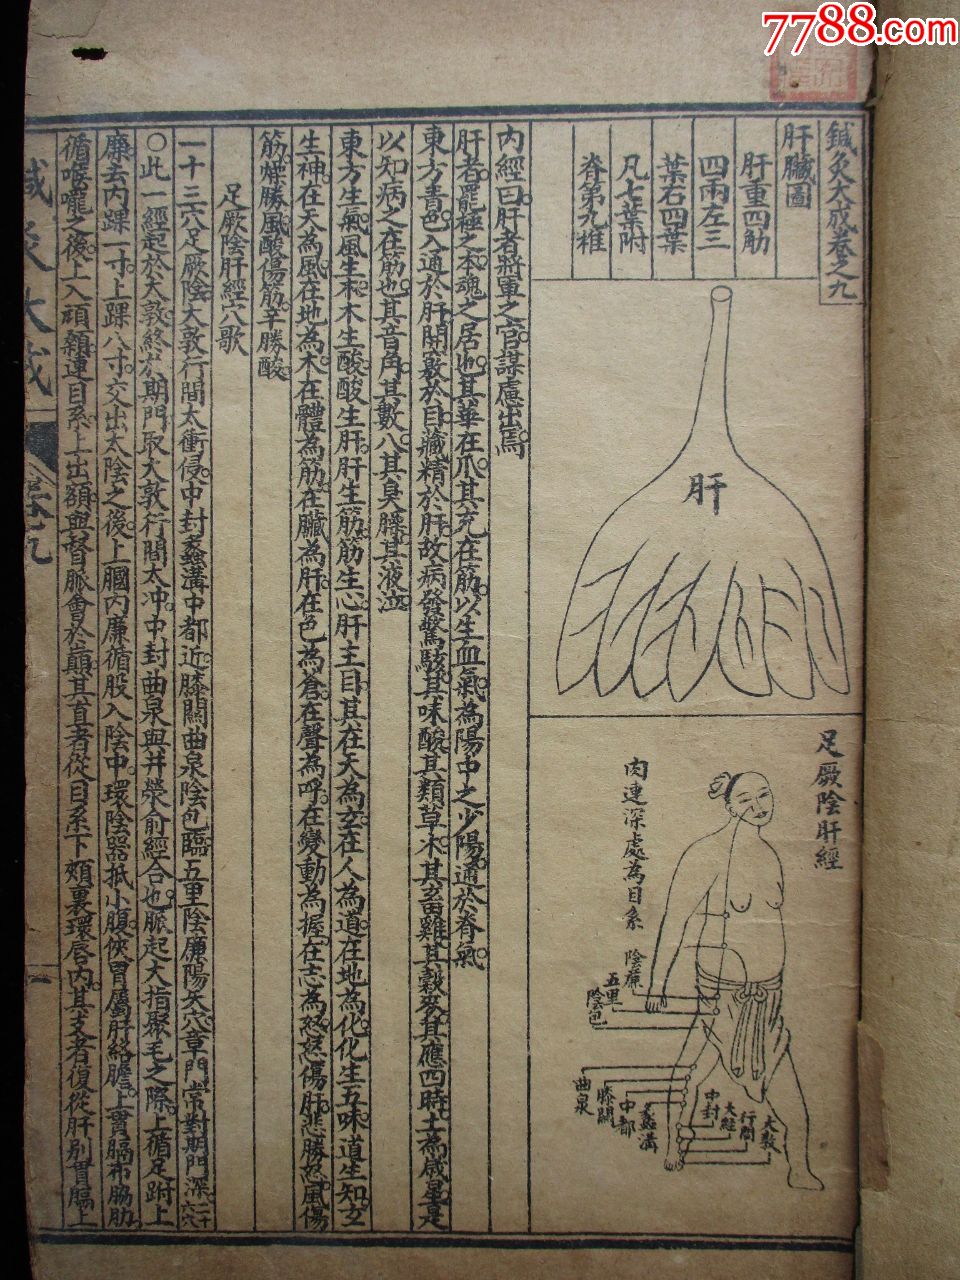 7788.com
鍼灸大成卷之九
肝臟圖
肝重四觔
四兩左三
葉右四葉
凡七葉附
脊第九椎
肝
足厥陰肝經
肉連深處為目系
陰廉
五里
陰包
曲泉
膝關
中都
蠡溝
中封
行間
大敦
內經曰肝者將軍之官謀慮出焉
肝者罷極之本魂之居也其華在爪其充在筋以生血氣為陽中之少陽通於脊氣
東方青色入通於肝開竅於目藏精於肝故病發驚駭其味酸其類草木其畜雞其穀麥其應四時上為歲星是
以知病之在筋也其音角其數八其臭臊其液泣
東方生氣風生木木生酸酸生肝肝生筋筋生心肝主目其在天為玄在人為道在地為化化生五味道生知玄
生神在天為風在地為木在體為筋在臟為肝在色為蒼在聲為呼在變動為握在志為怒怒傷肝悲勝怒風傷
筋燥勝風酸傷筋辛勝酸
足厥陰肝經穴歌
一十三穴足厥陰大敦行間太衝侵中封蠡溝中都近膝關曲泉陰包臨五里陰廉陽矢穴章門常對期門深二十六穴
○此一經起於大敦終於期門取大敦行間太冲中封曲泉與井滎俞經合也脈起大指聚毛之際上循足跗上
廉去內踝一寸上踝八寸交出太陰之後上膕內廉循股入陰中環陰器抵小腹俠胃屬肝絡膽上貫膈布脇肋
循喉嚨之後上入頏顙連目系上出額與督脈會於巔其直者從目系下頰裏環唇內其支者復從肝別貫膈上
鍼灸大成
卷九
一